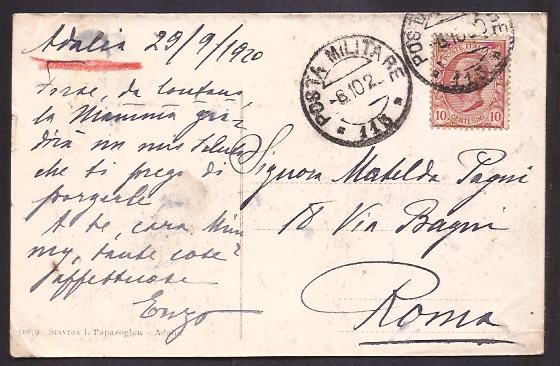 Adalia 29/9/1920
Forse, da lontano,
la Mamma gra
dirà un mio saluto
che ti prego di
porgerle
A te, cara Mim
my, tante cose
affettuose
Enzo
Signora Matelda Pagni
18 Via Bagni
Roma
POSTA MILITARE
-6.10.2
* 115 *
POSTA MILITARE
-6.10.20
115
POSTE
10 CENTESIMI 10
Stavros I. Papazoglou - Adalia